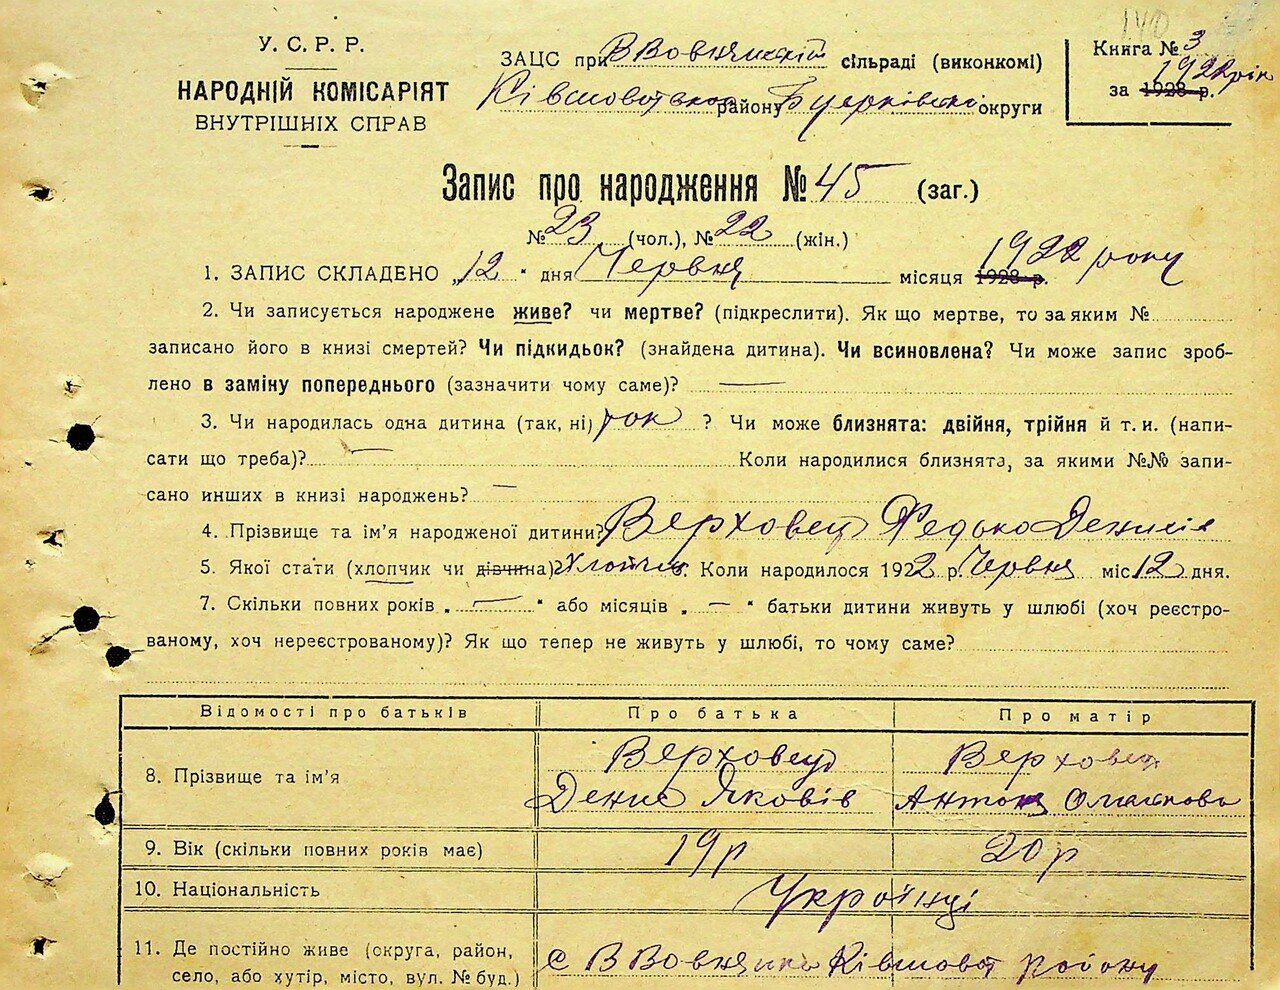 У. С. Р. Р.
НАРОДНІЙ КОМІСАРІЯТ
ВНУТРІШНІХ СПРАВ
ЗАЦС при сільраді (виконкомі)
району округи
Книга № 3
1922 рік
за 1928 р.
Запис про народження № 45 (заг.)
№ 23 (чол.), № 22 (жін.)
1. ЗАПИС СКЛАДЕНО „12“ дня Червня місяця 1928 р. 1922 року
2. Чи записується народжене живе? чи мертве? (підкреслити). Як що мертве, то за яким №
записано його в книзі смертей? Чи підкидьок? (знайдена дитина). Чи всиновлена? Чи може запис зроб-
лено в заміну попереднього (зазначити чому саме)? —
3. Чи народилась одна дитина (так, ні) так ? Чи може близнята: двійня, трійня й т. и. (напи-
сати що треба)? — Коли народилися близнята, за якими №№ запи-
сано инших в книзі народжень? —
4. Прізвище та ім'я народженої дитини? Верховец Федько Денисів
5. Якої стати (хлопчик чи дівчина)? Хлопчик. Коли народилося 1922 р. Червня міс 12 дня.
7. Скільки повних років „ — “ або місяців „ — “ батьки дитини живуть у шлюбі (хоч реєстро-
ваному, хоч нереєстрованому)? Як що тепер не живуть у шлюбі, то чому саме?
Відомості про батьків Про батька Про матір
8. Прізвище та ім'я Верховец Верховец
Денис Яковів
9. Вік (скільки повних років має) 19 р 20 р
10. Національність Українці
11. Де постійно живе (округа, район,
село, або хутір, місто, вул. № буд.) с В Вовнянка Ківшоват району